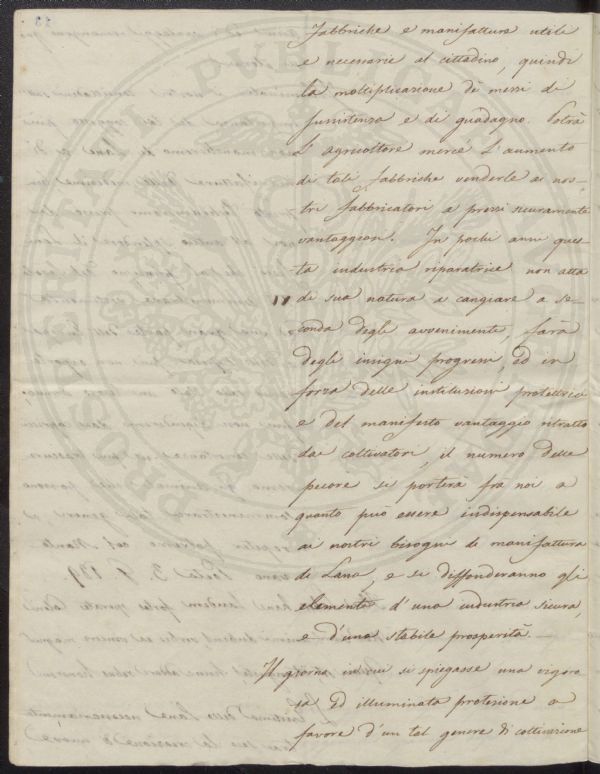 Fabbriche e manifatture utili
e necessarie al cittadino, quindi
la moltiplicazione de mezzi di
sussistenza e di guadagno. Potrà
L'agricoltore mercé L'aumento
di tali fabbriche venderle ai nos-
tri fabbricatori a prezzi sicuramente
vantaggiosi. In pochi anni ques-
ta industria riparatrice non atta
di sua natura a cangiare a se-
conda degli avvenimenti, farà
degli insigni progressi, ed in
forza delle instituzioni protettrici
e del manifesto vantaggio ritratto
dai coltivatori, il numero delle
pecore si porterà fra noi a
quanto può essere indispensabile
ai nostri bisogni di manifattura
di Lana, e si diffonderanno gli
elementi d'una industria sicura,
e d'una stabile prosperità.
Il giorno in cui si spiegasse una vigoro
sa ed illuminata protezione a
favore d'un tal genere di coltivazione
PVBLICA
PROSPERITATI